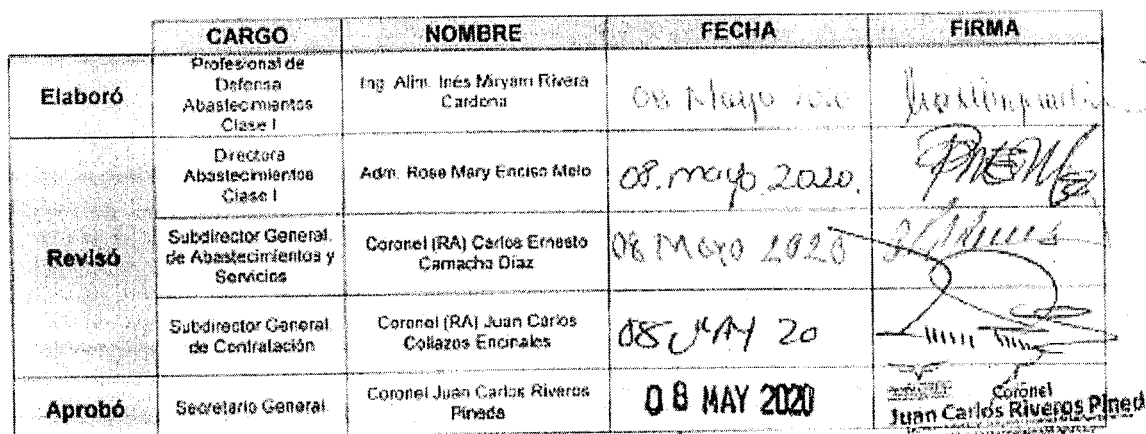 CARGO NOMBRE FECHA FIRMA
Elaboró
Profesional de
Defensa
Abastecimientos
Clase I
Ing. Alim. Inés Miryam Rivera
Cardona
08 Mayo
Revisó
Directora
Abastecimientos
Clase I
Adm. Rose Mary Enciso Melo
08. mayo 2020.
Subdirector General
de Abastecimientos y
Servicios
Coronel (RA) Carlos Ernesto
Camacho Díaz
08 Mayo 2020
Subdirector General
de Contratación
Coronel (RA) Juan Carlos
Collazos Encinales
08 MAY 20
Aprobó
Secretario General
Coronel Juan Carlos Riveros
Pineda
08 MAY 2020
Coronel
Juan Carlos Riveros Pined